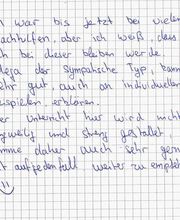 war bis jetzt bei vielen
achhilfen, aber ich weiß, dass
ch bei dieser bleiben werde.
deza der sympathische Typ, kann
ehr gut, auch an individuellen
eispielen, erklären.
er Unterricht hier wird nicht
gweilig und streng gestaltet,
mme daher auch sehr gern
t auf jedenfall weiter zu empfehl